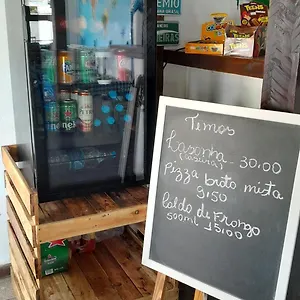 Temos
Lasanha - 30,00
(caseira)
Pizza broto mista
9,50
Caldo de Frango
500ml 15,00